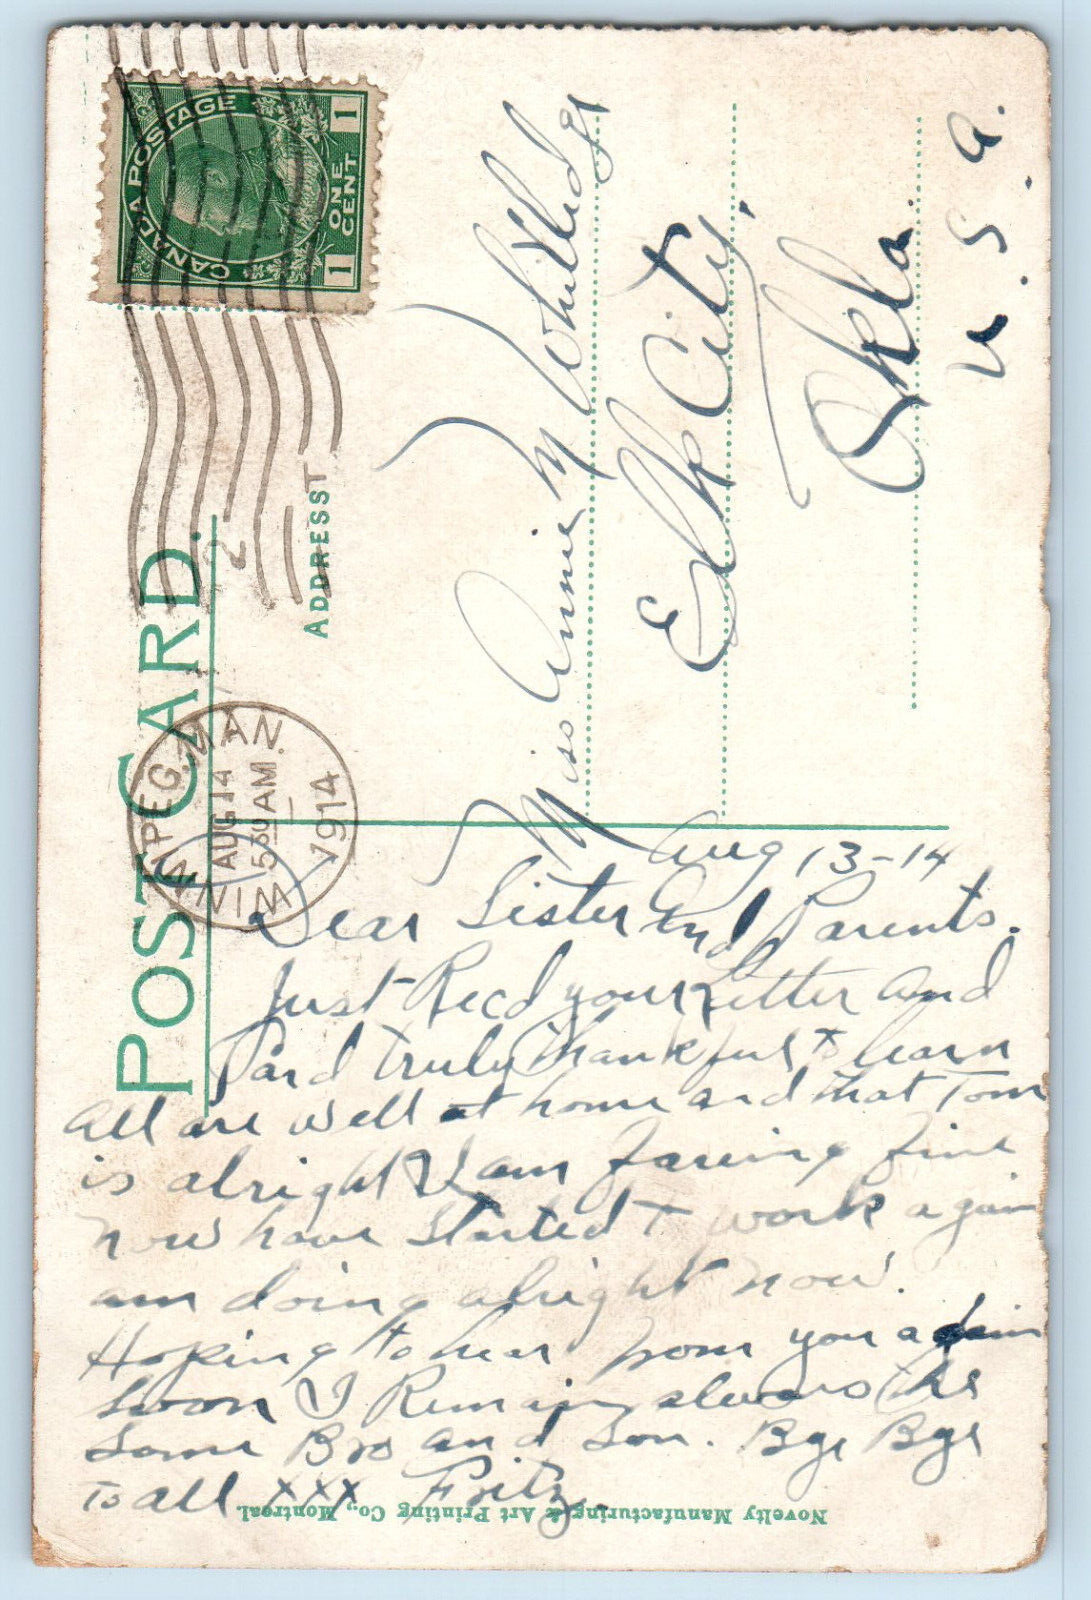 POST CARD.
CANADA POSTAGE
1 ONE CENT 1
WINNIPEG. MAN.
AUG 14
5 30 AM
1914
2
ADDRESS
Miss Annie M
Elk City,
Okla.
U. S. A.
Aug 13-14
Dear Sister and Parents.
Just Recd your Letter and
Card truly thankful to learn
all are well at home and that Tom
is alright I am fareing fine
now have started to work again
am doing alright now.
Hoping to hear from you again
soon I Remain always the
same Bro and Son. Bye Bye
To all xxx Fritz.
Novelty Manufacturing & Art Printing Co., Montreal.